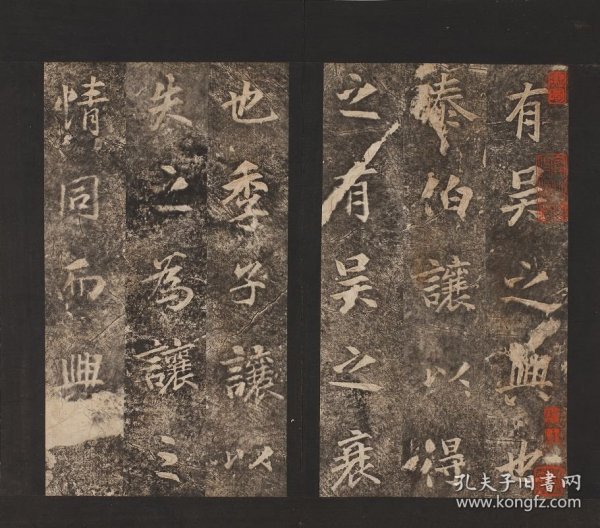 有吴之興也
泰伯讓以得
之有吴之衰
也季子讓以
失之為讓之
情同而興
孔夫子旧书网
www.kongfz.com